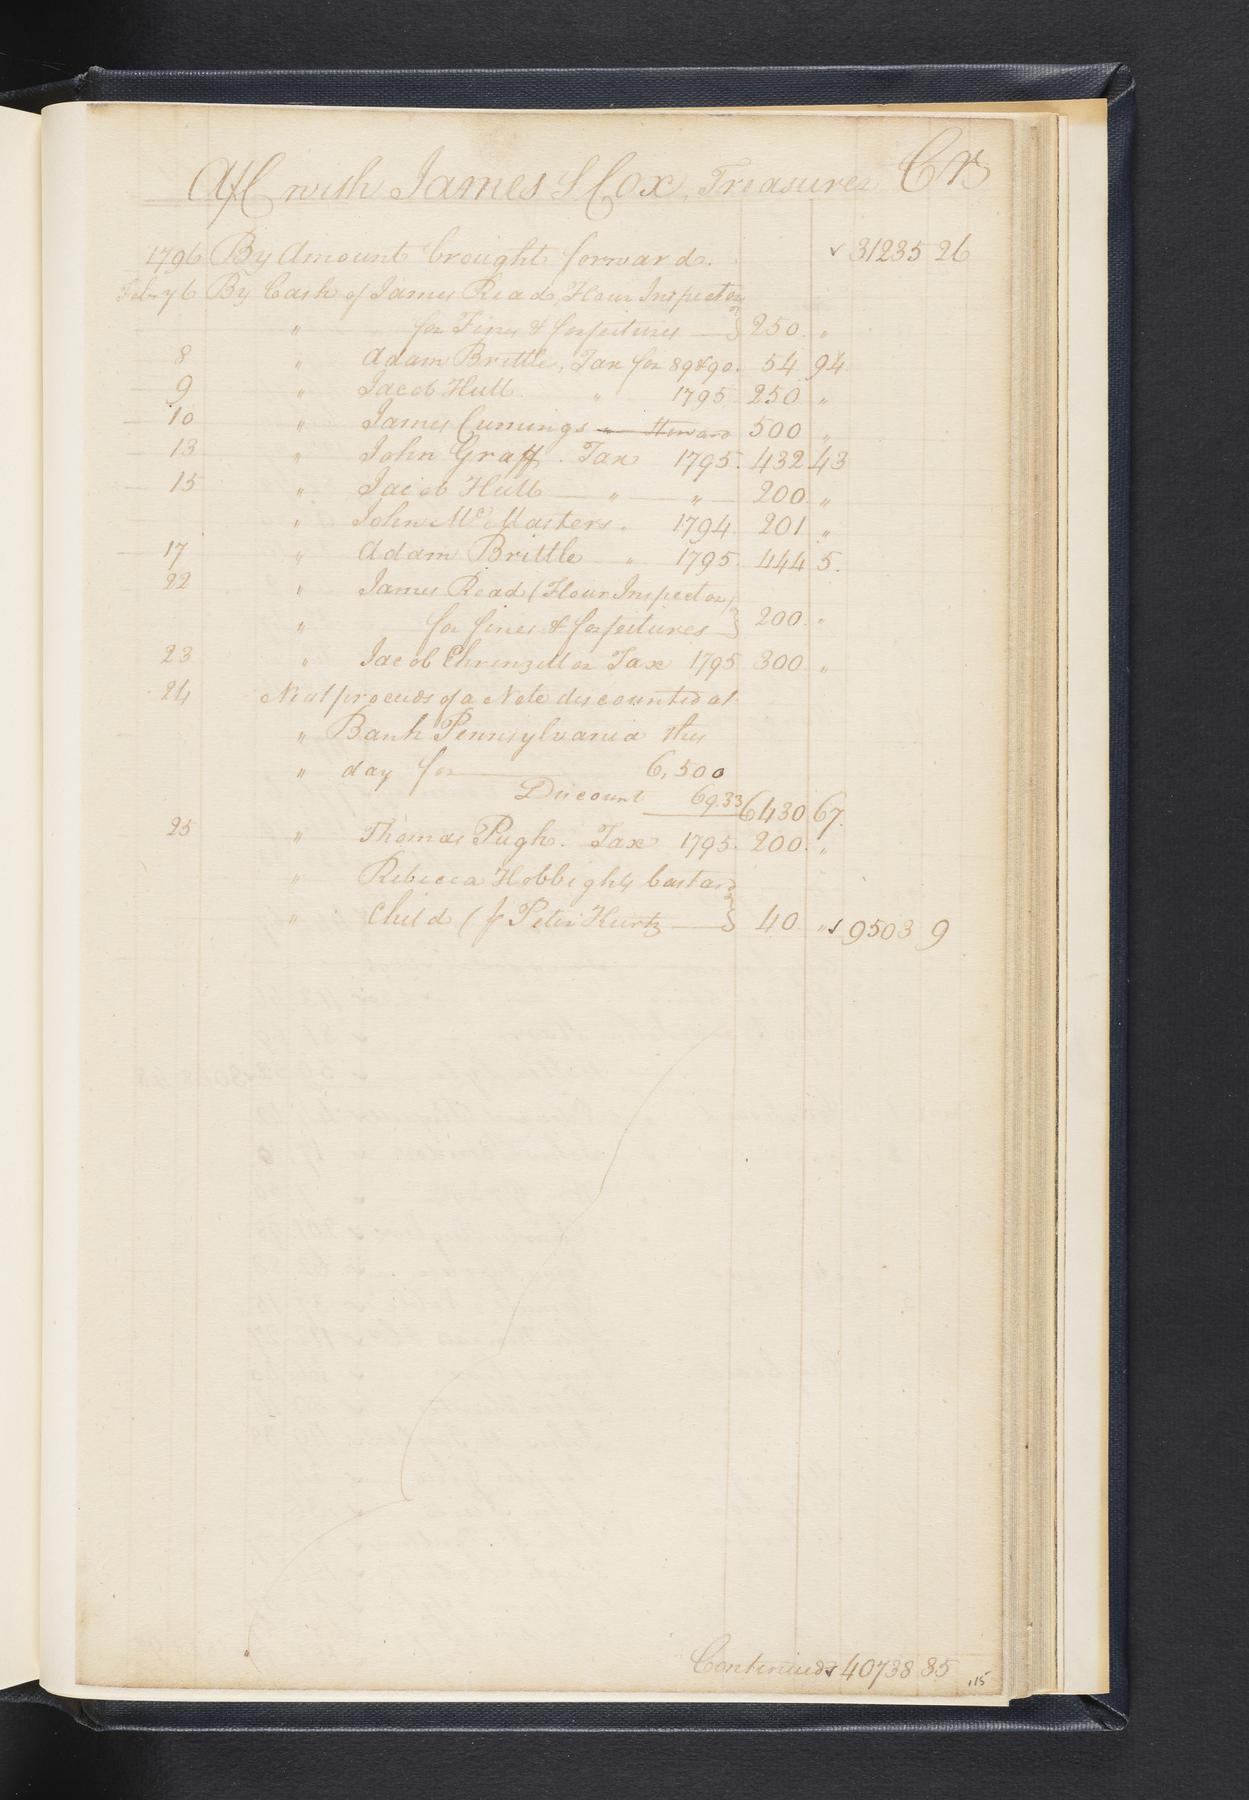 A/C with James S Cox, Treasurer Crs
1796 By Amount brought forward. ✓ 31235 26
Febry 6 By Cash of James Read, Flour Inspector
" for Fines & forfeitures — } 250 "
8 " Adam Brittle, Tax for 89 & 90. 54 94
9 " Jacob Hull " 1795 250 "
10 " James Cumings " 500 "
13 " John Graff. Tax 1795. 432 43
15 " Jacob Hull — " — " — 200 "
" John McMasters. 1794 201 "
17 " Adam Brittle " 1795. 444 5.
22 " James Read (Flour Inspector)
" for fines & forfeitures — } 200 "
23 " Jacob Ehrenzellor Tax 1795 300 "
24 Neat proceeds of a Note discounted at
" Bank Pennsylvania this
" day for — 6,500
Discount 69.33 6430 67.
25 " Thomas Pugh. Tax 1795. 200. "
" Rebecca Hobbights bastard
" Child (of Peter Kurtz — } 40. " ✓ 9503 9
Continued ✓ 40738 35
115